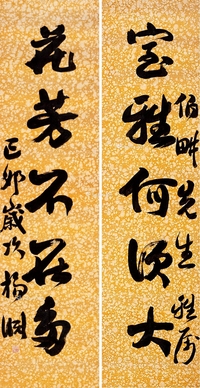 伯畊先生雅属
室雅何须大
花芳不在多
己卯岁次杨涧